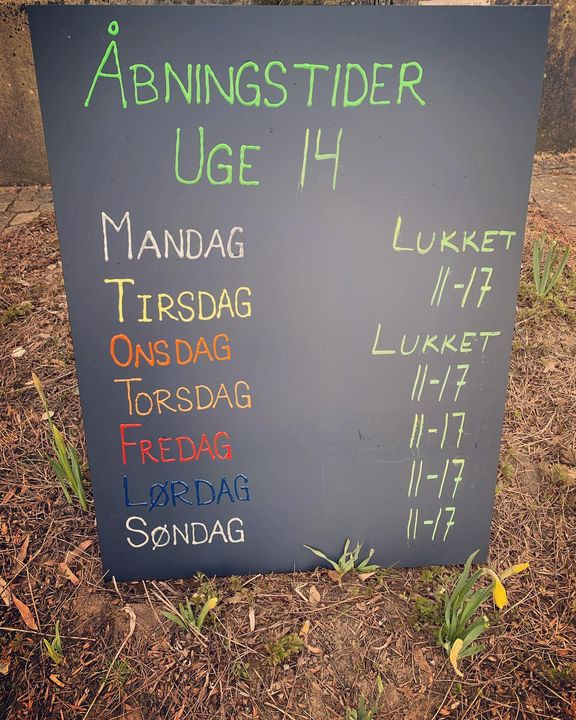 ÅBNINGSTIDER
UGE 14
MANDAG LUKKET
TIRSDAG 11-17
ONSDAG LUKKET
TORSDAG 11-17
FREDAG 11-17
LØRDAG 11-17
SØNDAG 11-17